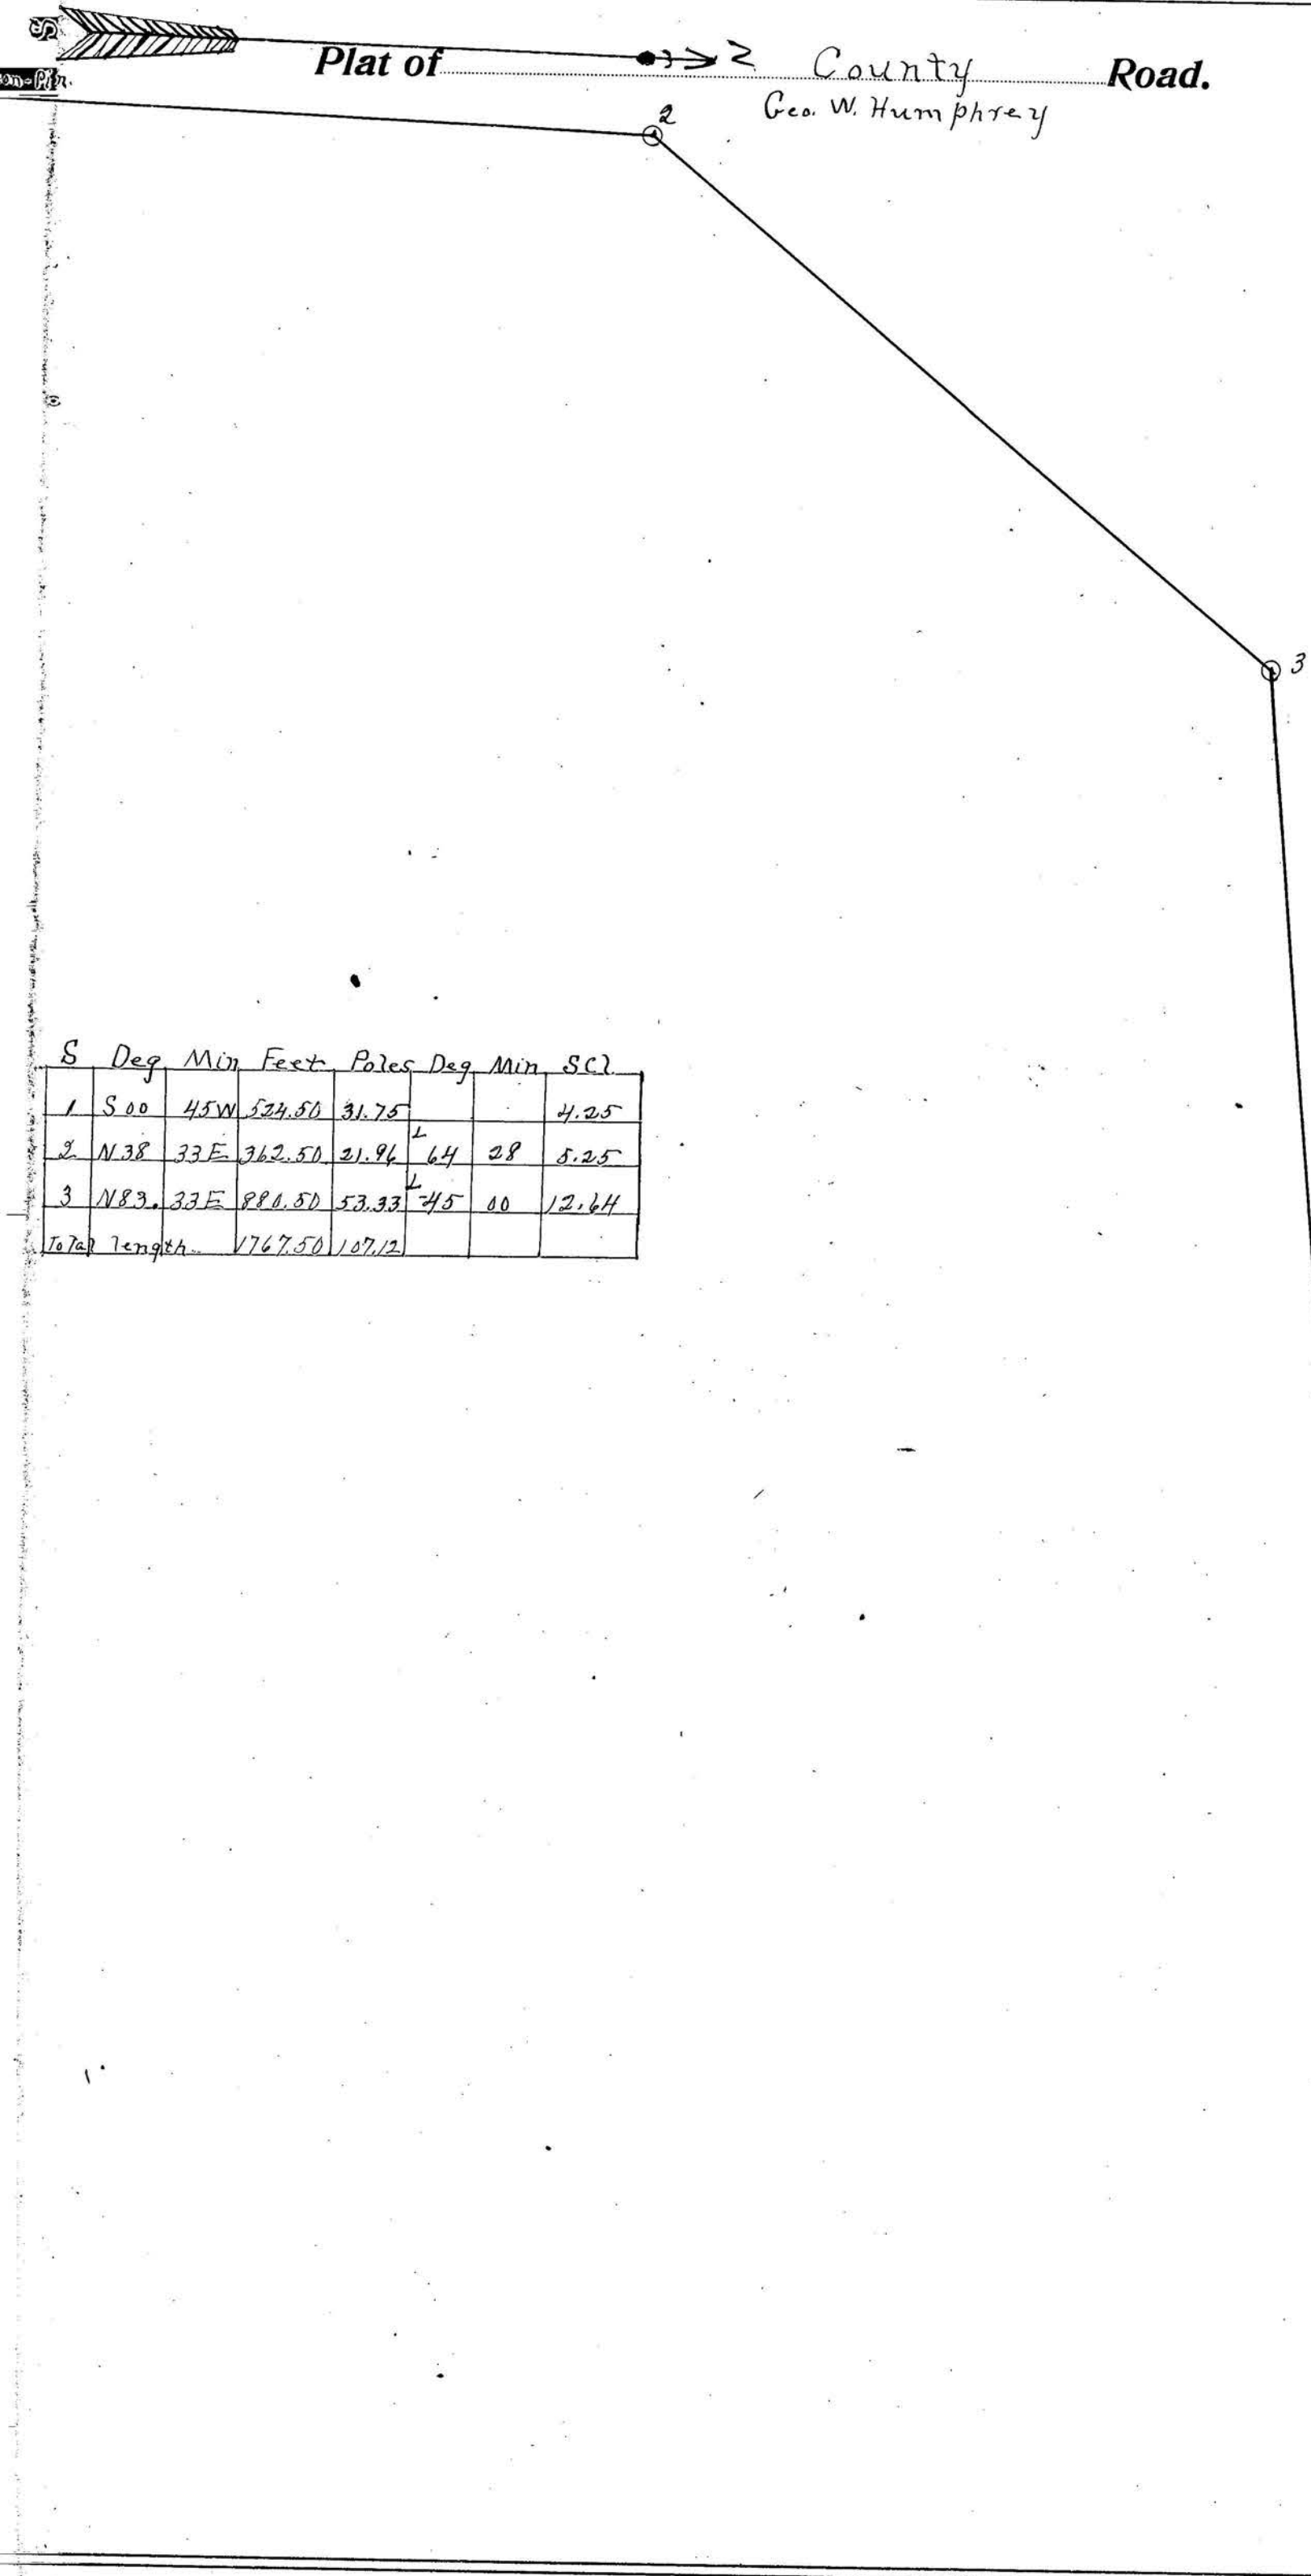 Plat of County Road.
Geo. W. Humphrey
2
3
S Deg Min Feet Poles Deg Min SCl
1 S00 45W 524.50 31.75 4.25
2 N38 33E 362.50 21.96 L 64 28 5.25
3 N83. 33E 880.50 53.33 L 45 00 12.64
Total length 1767.50 107.12